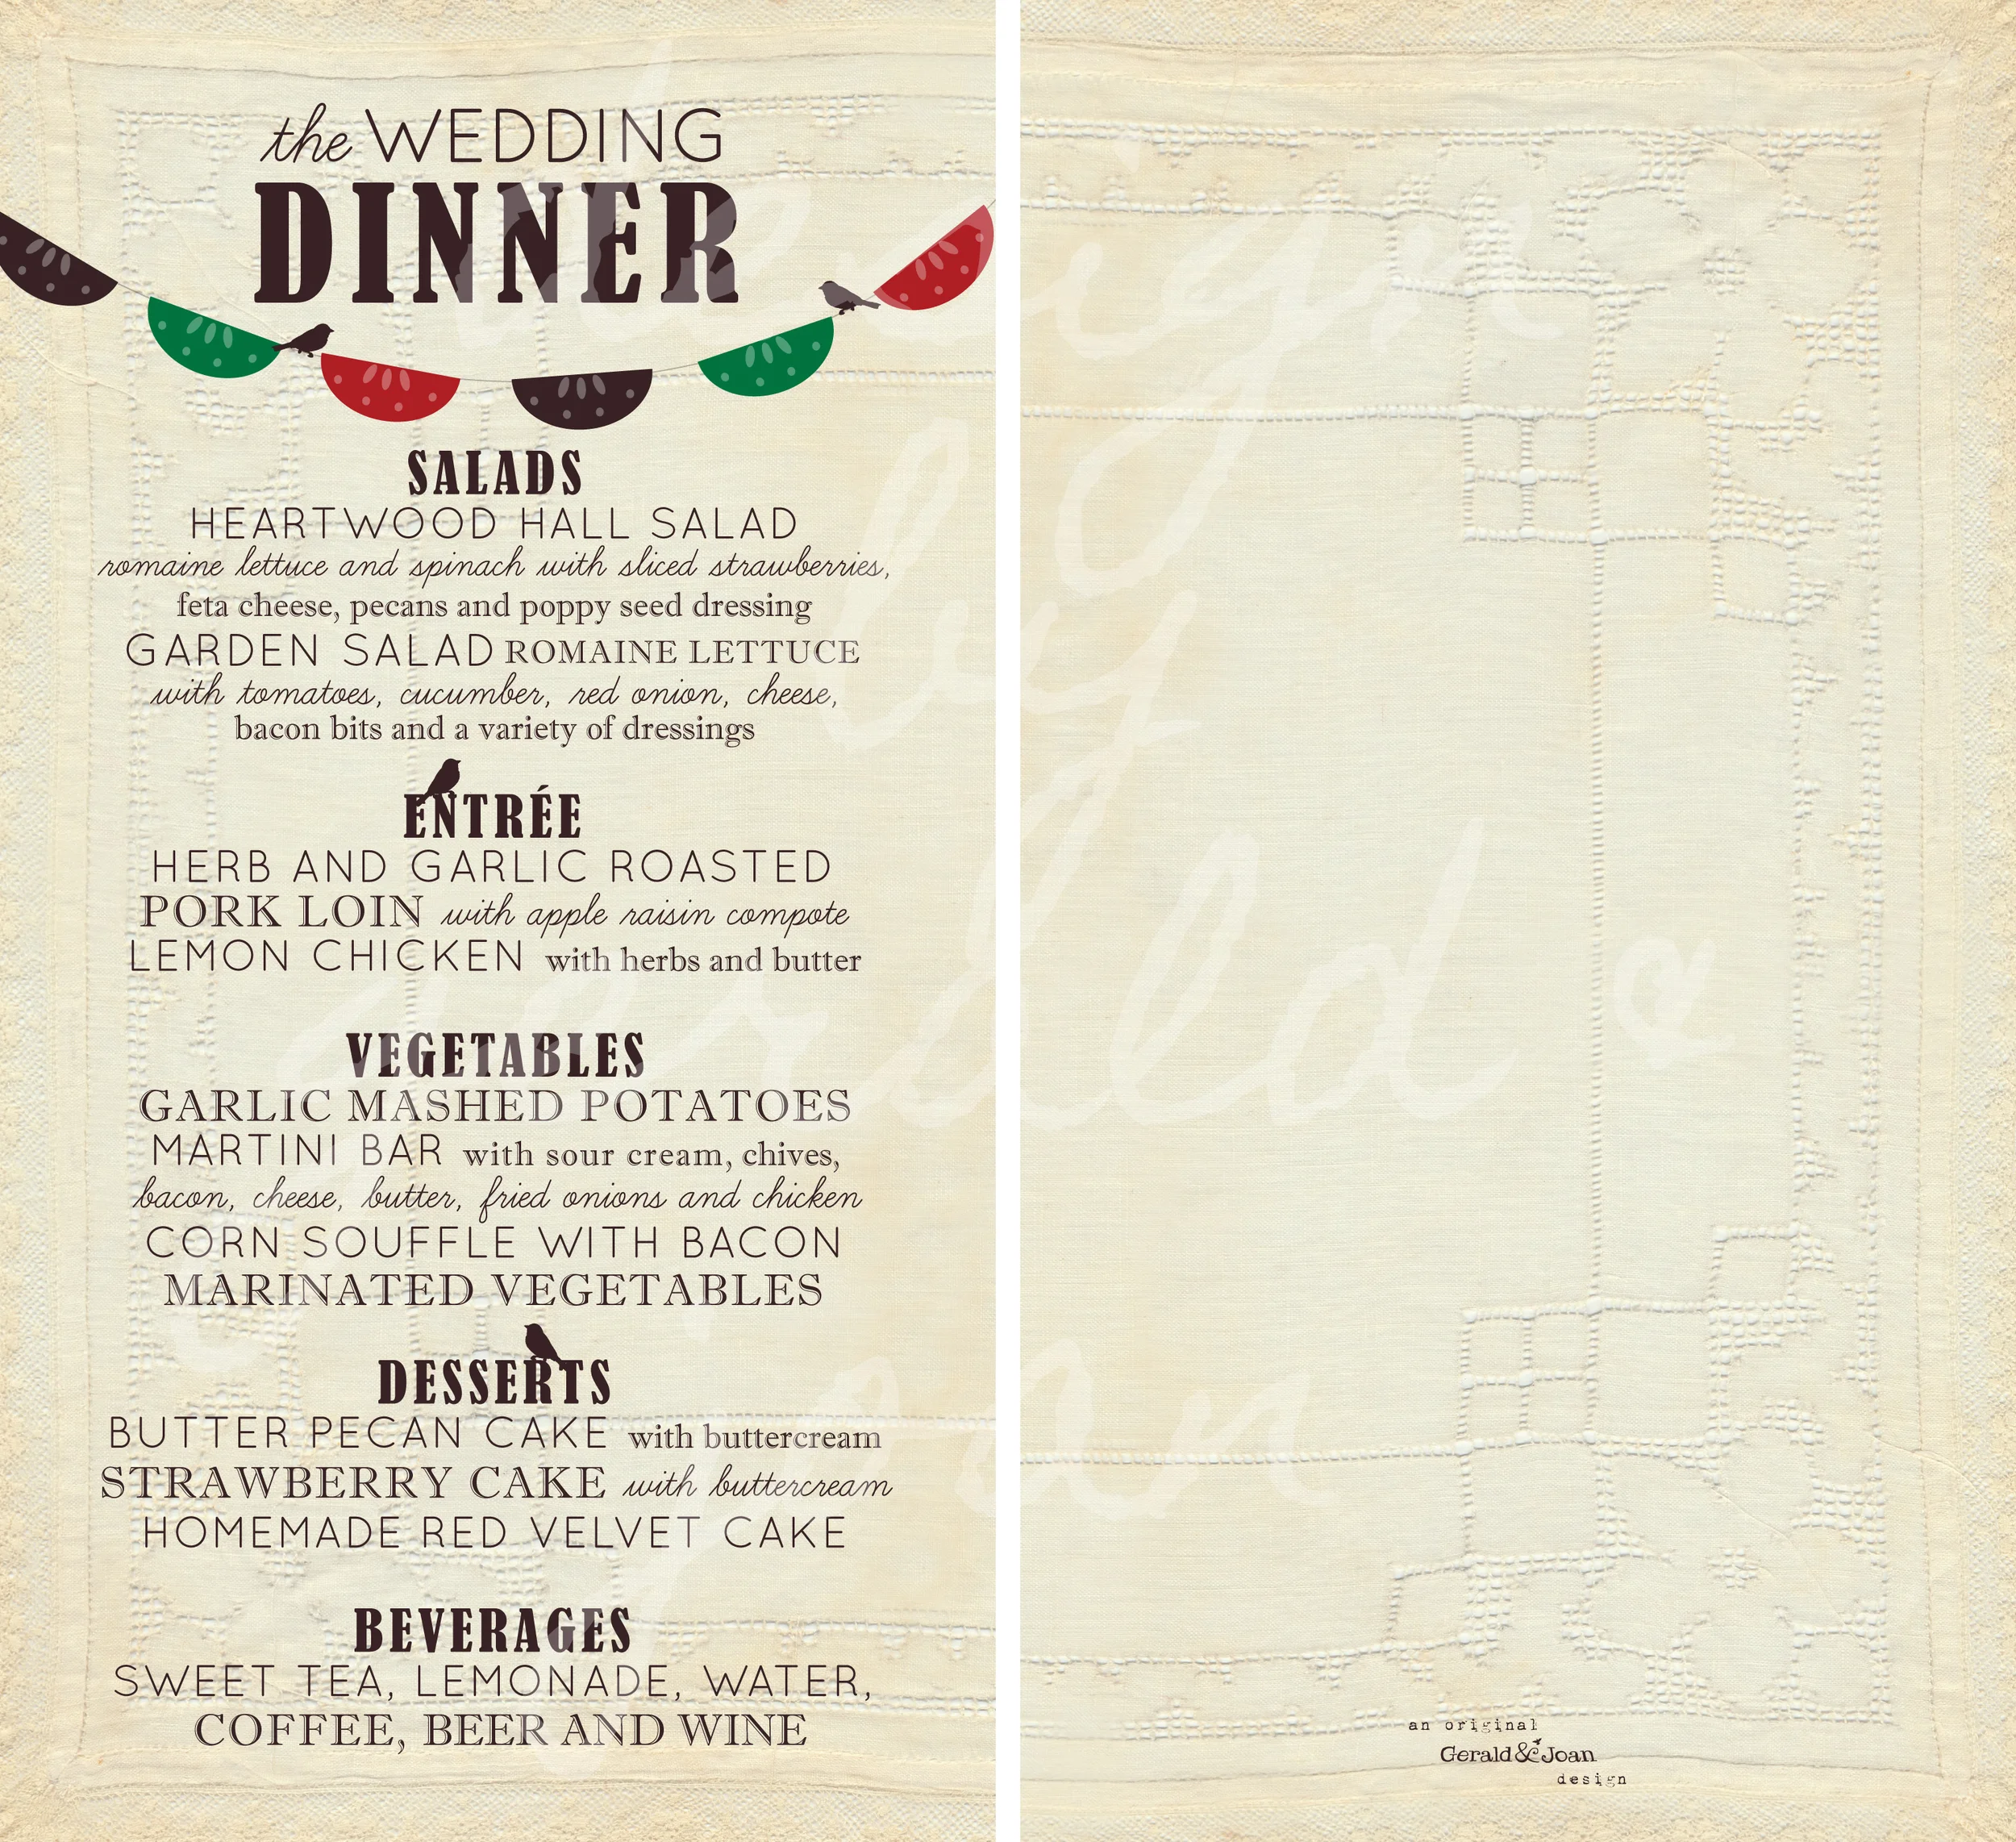 the WEDDING
DINNER
SALADS
HEARTWOOD HALL SALAD
romaine lettuce and spinach with sliced strawberries,
feta cheese, pecans and poppy seed dressing
GARDEN SALAD ROMAINE LETTUCE
with tomatoes, cucumber, red onion, cheese,
bacon bits and a variety of dressings
ENTRÉE
HERB AND GARLIC ROASTED
PORK LOIN with apple raisin compote
LEMON CHICKEN with herbs and butter
VEGETABLES
GARLIC MASHED POTATOES
MARTINI BAR with sour cream, chives,
bacon, cheese, butter, fried onions and chicken
CORN SOUFFLE WITH BACON
MARINATED VEGETABLES
DESSERTS
BUTTER PECAN CAKE with buttercream
STRAWBERRY CAKE with buttercream
HOMEMADE RED VELVET CAKE
BEVERAGES
SWEET TEA, LEMONADE, WATER,
COFFEE, BEER AND WINE
an original
Gerald & Joan
design